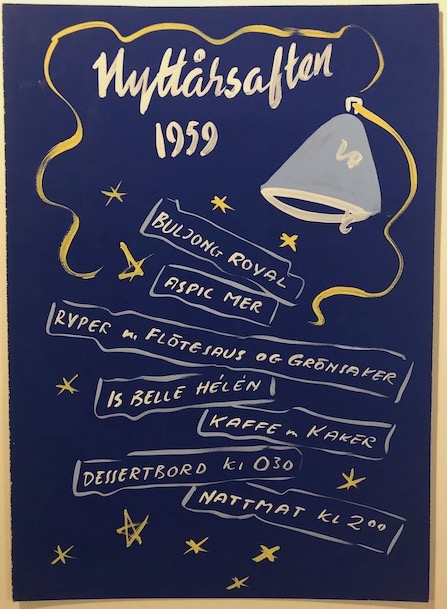 Nyttårsaften
1959
BULJONG ROYAL
ASPIC MER
RYPER m, FLÖTESAUS OG GRÖNSAKER
IS BELLE HÉLÉN
KAFFE m KAKER
DESSERTBORD kl 030
NATTMAT KL 200